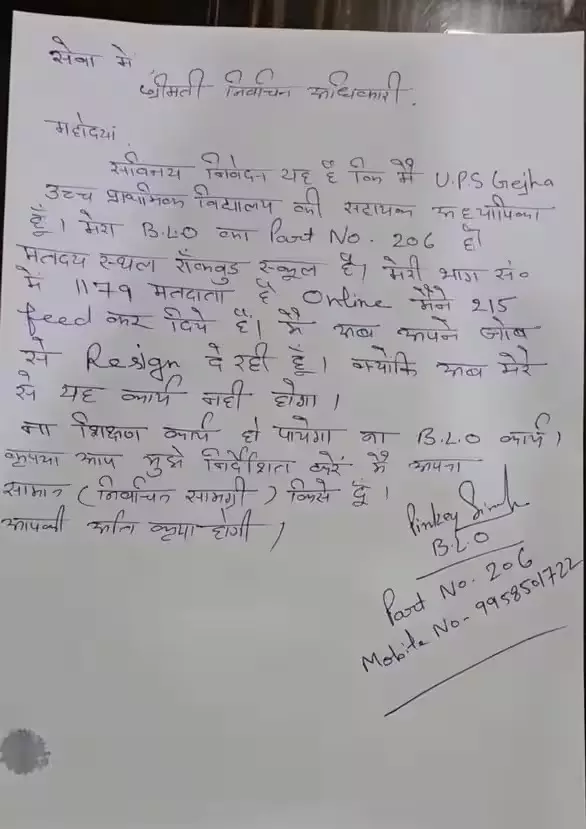 सेवा में
श्रीमती निर्वाचन अधिकारी.
महोदया
सविनय निवेदन यह है कि मैं U.P.S Gejha
उच्च प्राथमिक विद्यालय की सहायक अध्यापिका
हूँ। मेरा B.L.O का Part No. 206 है।
मतदय स्थल रॉकवुड स्कूल है। मेरी भाग सं०
में 1179 मतदाता है Online मैंने 215
feed कर दिये हैं। मैं अब अपने जोब
से Resign दे रही हूँ। क्योकि अब मेरे
से यह कार्य नही होगा।
ना शिक्षण कार्य हो पायेगा ना B.L.O कार्य।
कृपया आप मुझे निर्देशित करें मैं अपना
सामान (निर्वाचन सामग्री) किसे दूँ।
आपकी अति कृपा होगी।
Pinkey Singh
B.L.O
Part No. 206
Mobile No- 9958501722